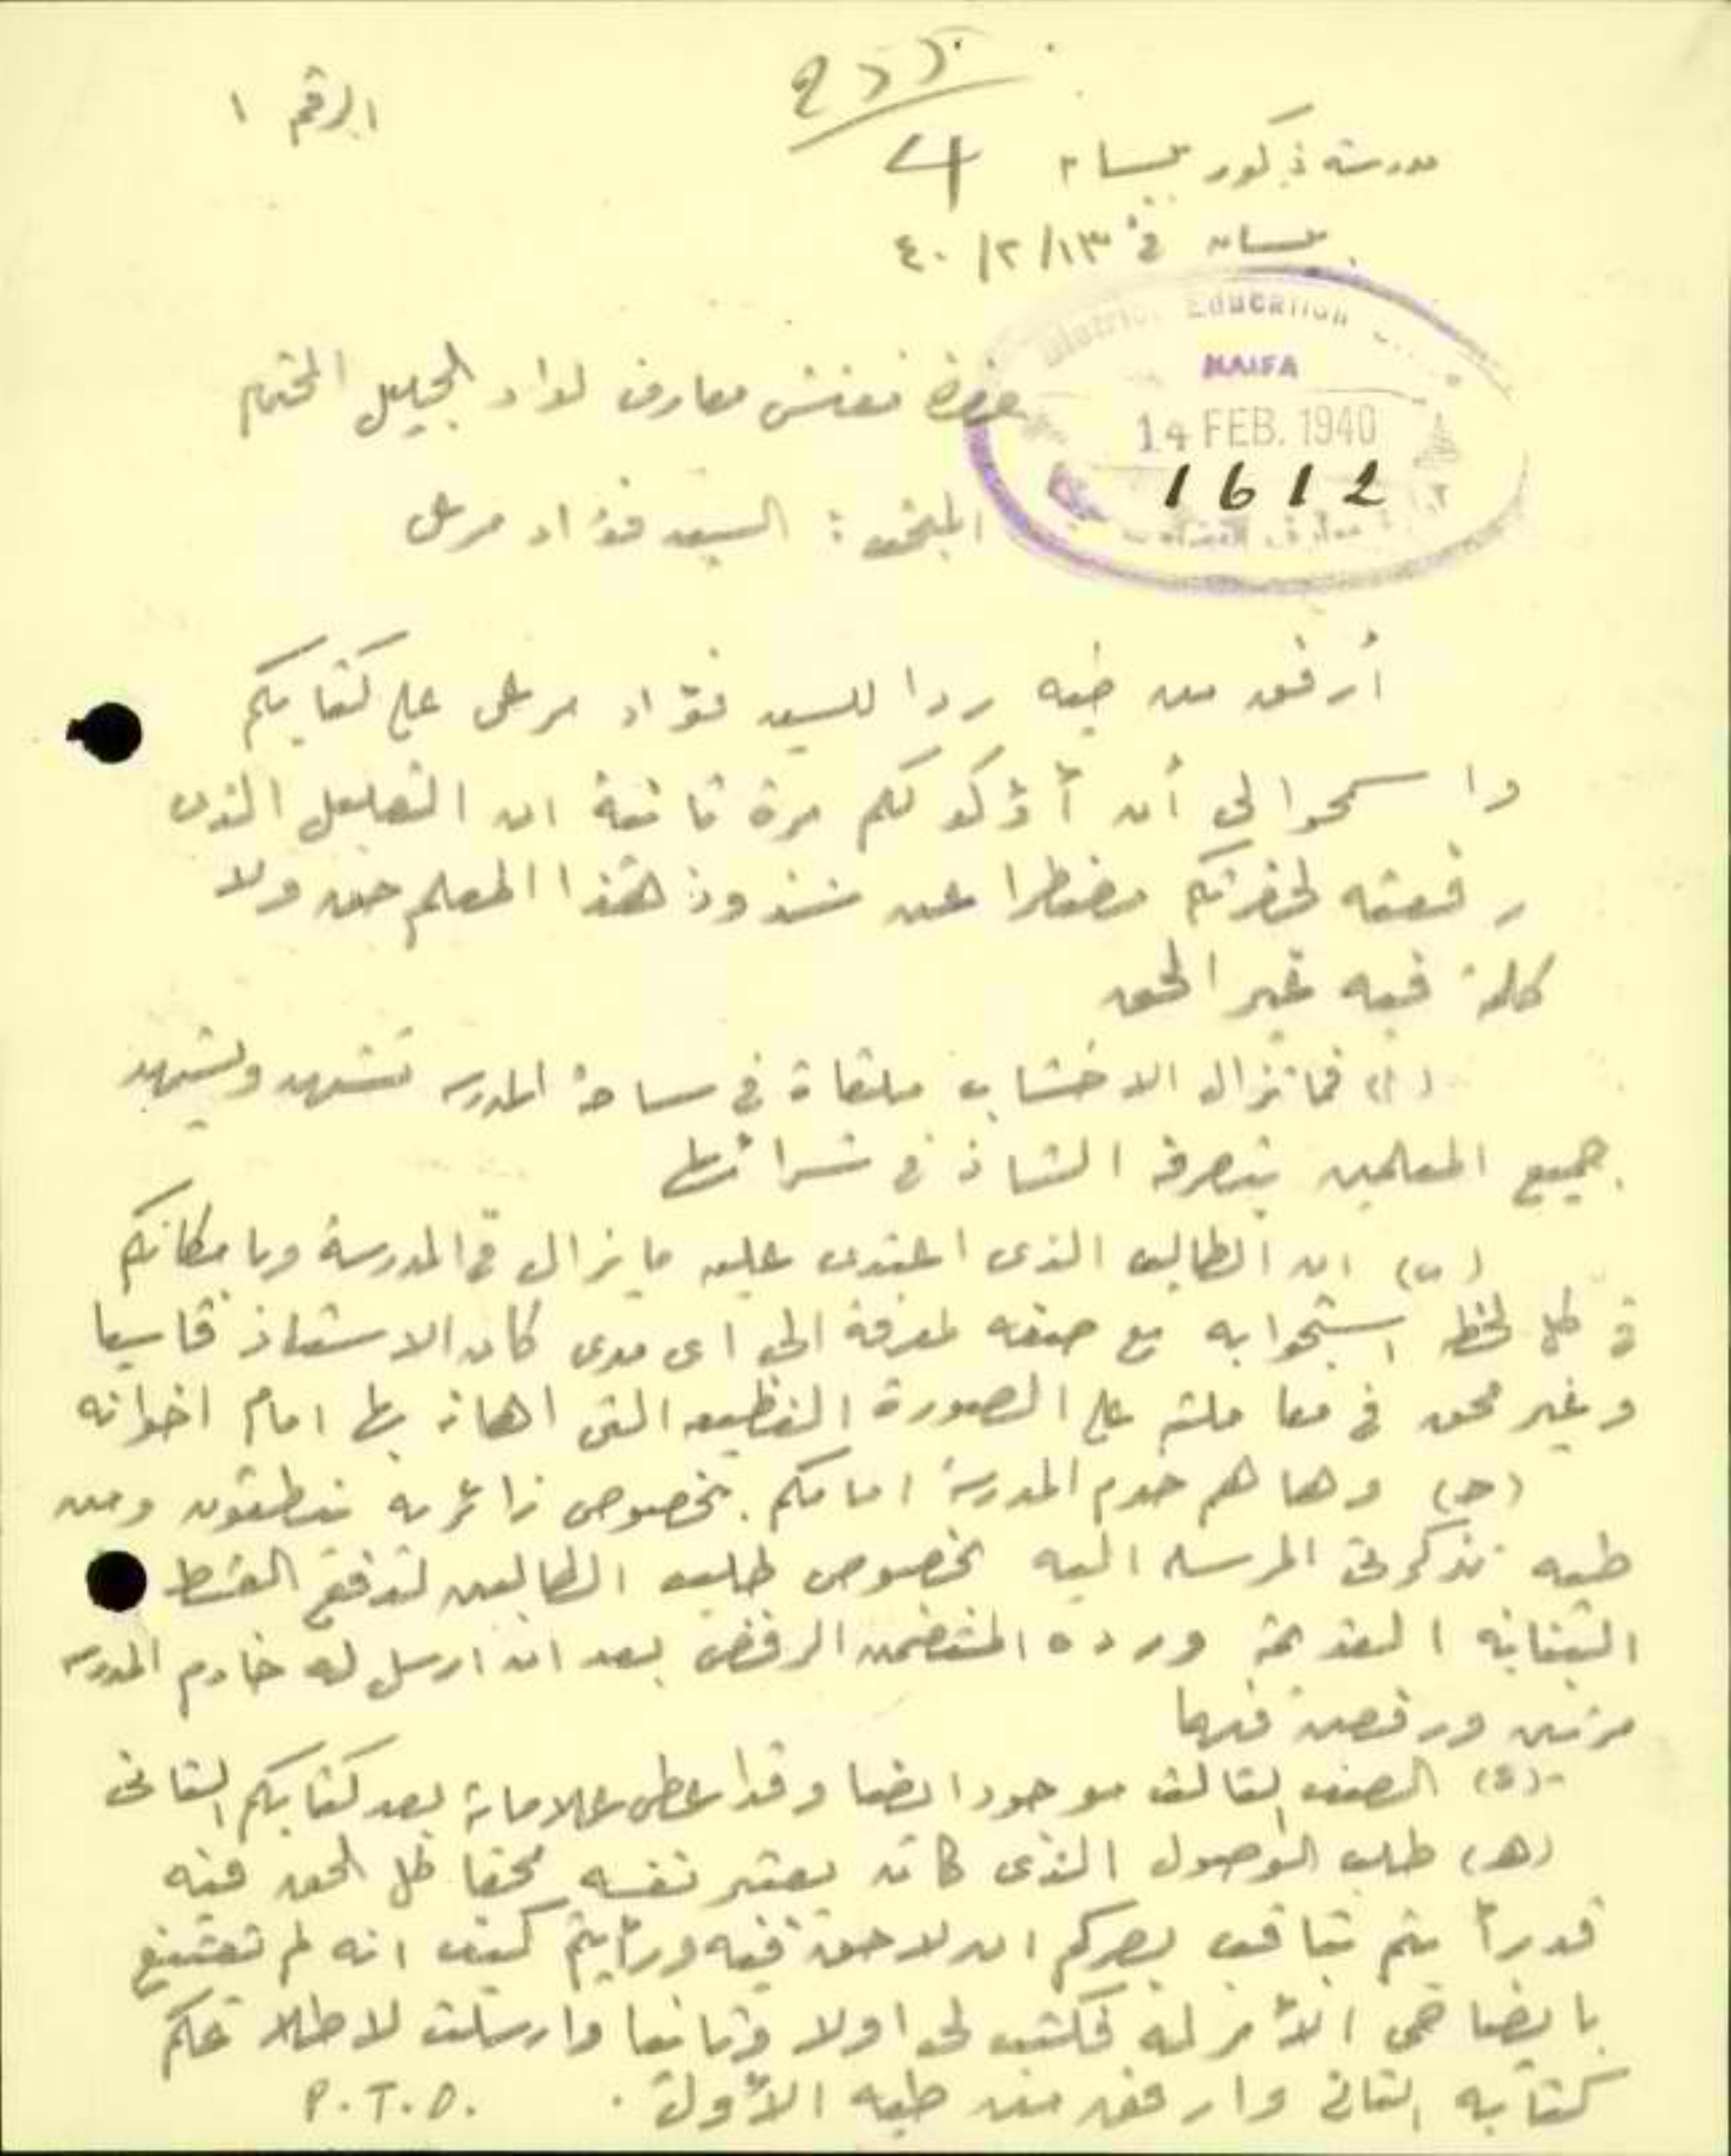 الرقم ١
مدرسة ذكور بيسان
4
بيسان في ١٣/ ٢/ ٤٠
District Education
HAIFA
14 FEB. 1940
1612
حضرة مفتش معارف لواء الجليل المحترم
المبحث : السيد فؤاد مرعي
أرفق من طيه ردا للسيد فؤاد مرعي على كتابكم
واسمحوا لي أن أؤكد لكم مرة ثانية ان التعليل الذي
رفعته لحضرتكم مضطرا عن شذوذ هذا المعلم حق ولا
كلمة فيه غير الحق
(ا) فما تزال الاخشاب ملقاة في ساحة المدرسه تشهد ويشهد
جميع المعلمين بتصرفه الشاذ في شرائها
(ب) ان الطالب الذي اعتدى عليه ما يزال في المدرسة وبامكانكم
في كل لحظه استجوابه مع صفه لمعرفة الى اى مدى كان الاستاذ قاسيا
وغير محق في معاملته على الصورة الفظيعه التي اهانه بها امام اخوانه
(ج) وها هم خدم المدرسة امامكم بخصوص زائريه ينطقون ومن
طيه تذكرتى المرسله اليه بخصوص طلب الطالبين لتدفع القسط
البنايه القديمة ورده المتضمن الرفض بعد ان ارسل له خادم المدرسه
مرتين ورفض فيهما
(د) الصف الثالث موجود ايضا وقد اعطى علاماته بعد كتابكم الثاني
(هـ) طلب الوصول الذى كان يعتبر نفسه محقا كل الحق فيه
قد رأيتم بثاقب بصركم ان لا حق فيه ورأيتم كيف انه لم يقتنع
بايضاحي الأمر له فكتب لي اولا وثانيا وارسلت لاطلاعكم
كتابه الثاني وارفق من طيه الأول .
P.T.O.